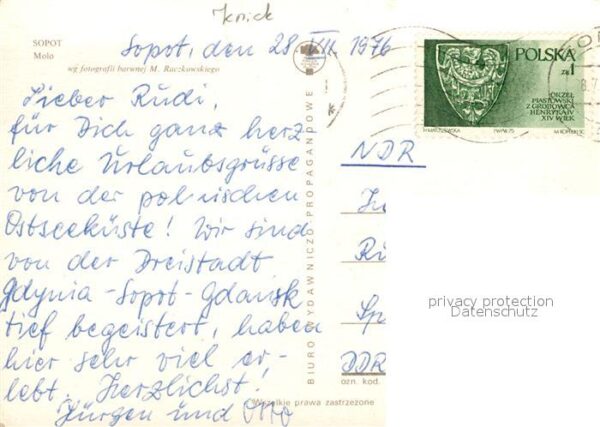 Knick
SOPOT
Molo
wg fotografii barwnej M. Raczkowskiego
Sopot, den 28. VII. 1976
Lieber Rudi,
für Dich ganz herz
liche Urlaubsgrüsse
von der polnischen
Ostseeküste! Wir sind
von der Dreistadt
Gdynia-Sopot-Gdańsk
tief begeistert, haben
hier sehr viel er-
lebt. Herzlichst!
Jürgen und Otto
BIURO WYDAWNICZO-PROPAGANDOWE
POLSKA
zł 1
ORZEŁ
PIASTOWSKI
Z GROBOWCA
HENRYKA IV
XIV WIEK
PWPW.75
NDR
DDR
ozn. kod.
Wszelkie prawa zastrzeżone
privacy protection
Datenschutz